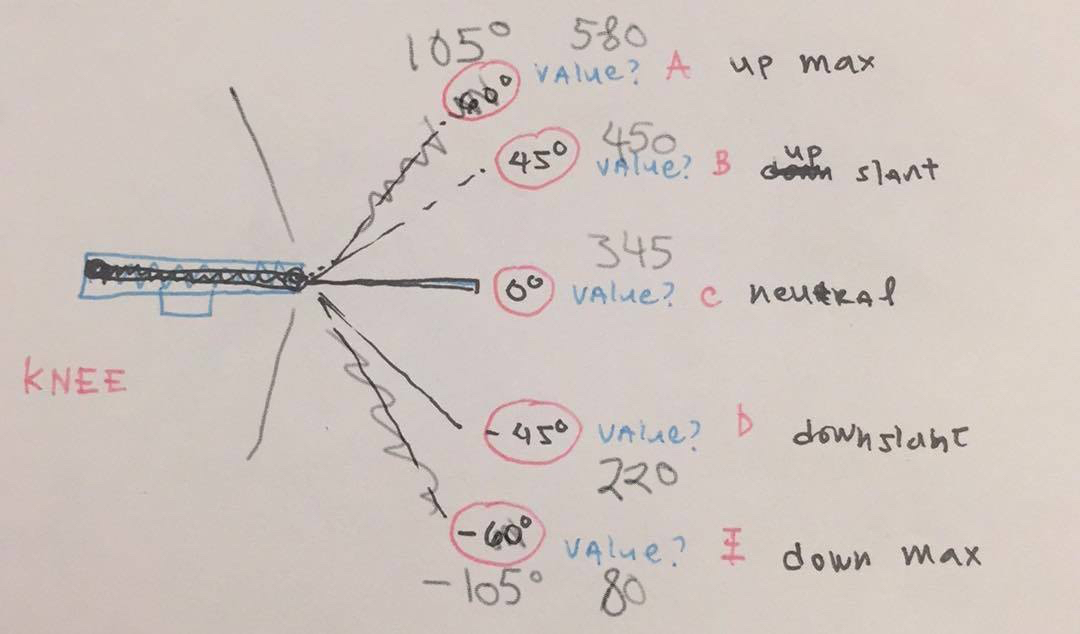 105° 580
60° value? A up max
450
45° value? B down up slant
345
0° value? C neutral
KNEE
-45° value? D downslant
220
-60° value? E down max
-105° 80